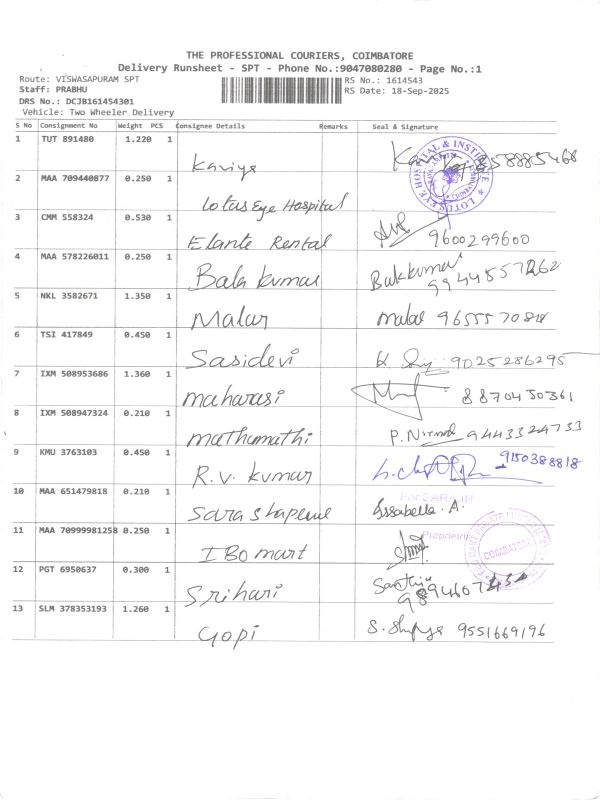 THE PROFESSIONAL COURIERS, COIMBATORE
Delivery Runsheet - SPT - Phone No.:9047080280 - Page No.:1
Route: VISWASAPURAM SPT RS No.: 1614543
Staff: PRABHU RS Date: 18-Sep-2025
DRS No.: DCJB161454301
Vehicle: Two Wheeler Delivery
S No Consignment No Weight PCS Consignee Details Remarks Seal & Signature
1 TUT 891480 1.220 1
Kaviya
2 MAA 709440877 0.250 1
Lotus Eye Hospital
3 CMM 558324 0.530 1
Elante Rental 9600299600
4 MAA 578226011 0.250 1
Bala kumar Balkkumar
5 NKL 3582671 1.350 1
Malar malar
6 TSI 417849 0.450 1
Sasidevi 9025286295
7 IXM 508953686 1.360 1
maharasi 8870450361
8 IXM 508947324 0.210 1
mathumathi P. Nirmal 9443324733
9 KMU 3763103 0.450 1
R.V. kumar 9150388818
10 MAA 651479818 0.210 1
For SARA IN
Issabella. A.
11 MAA 70999981258 0.250 1
Proprietrix
IBO mart COIMBATORE
12 PGT 6950637 0.300 1
Srihari
13 SLM 378353193 1.260 1
Gopi 9551669196